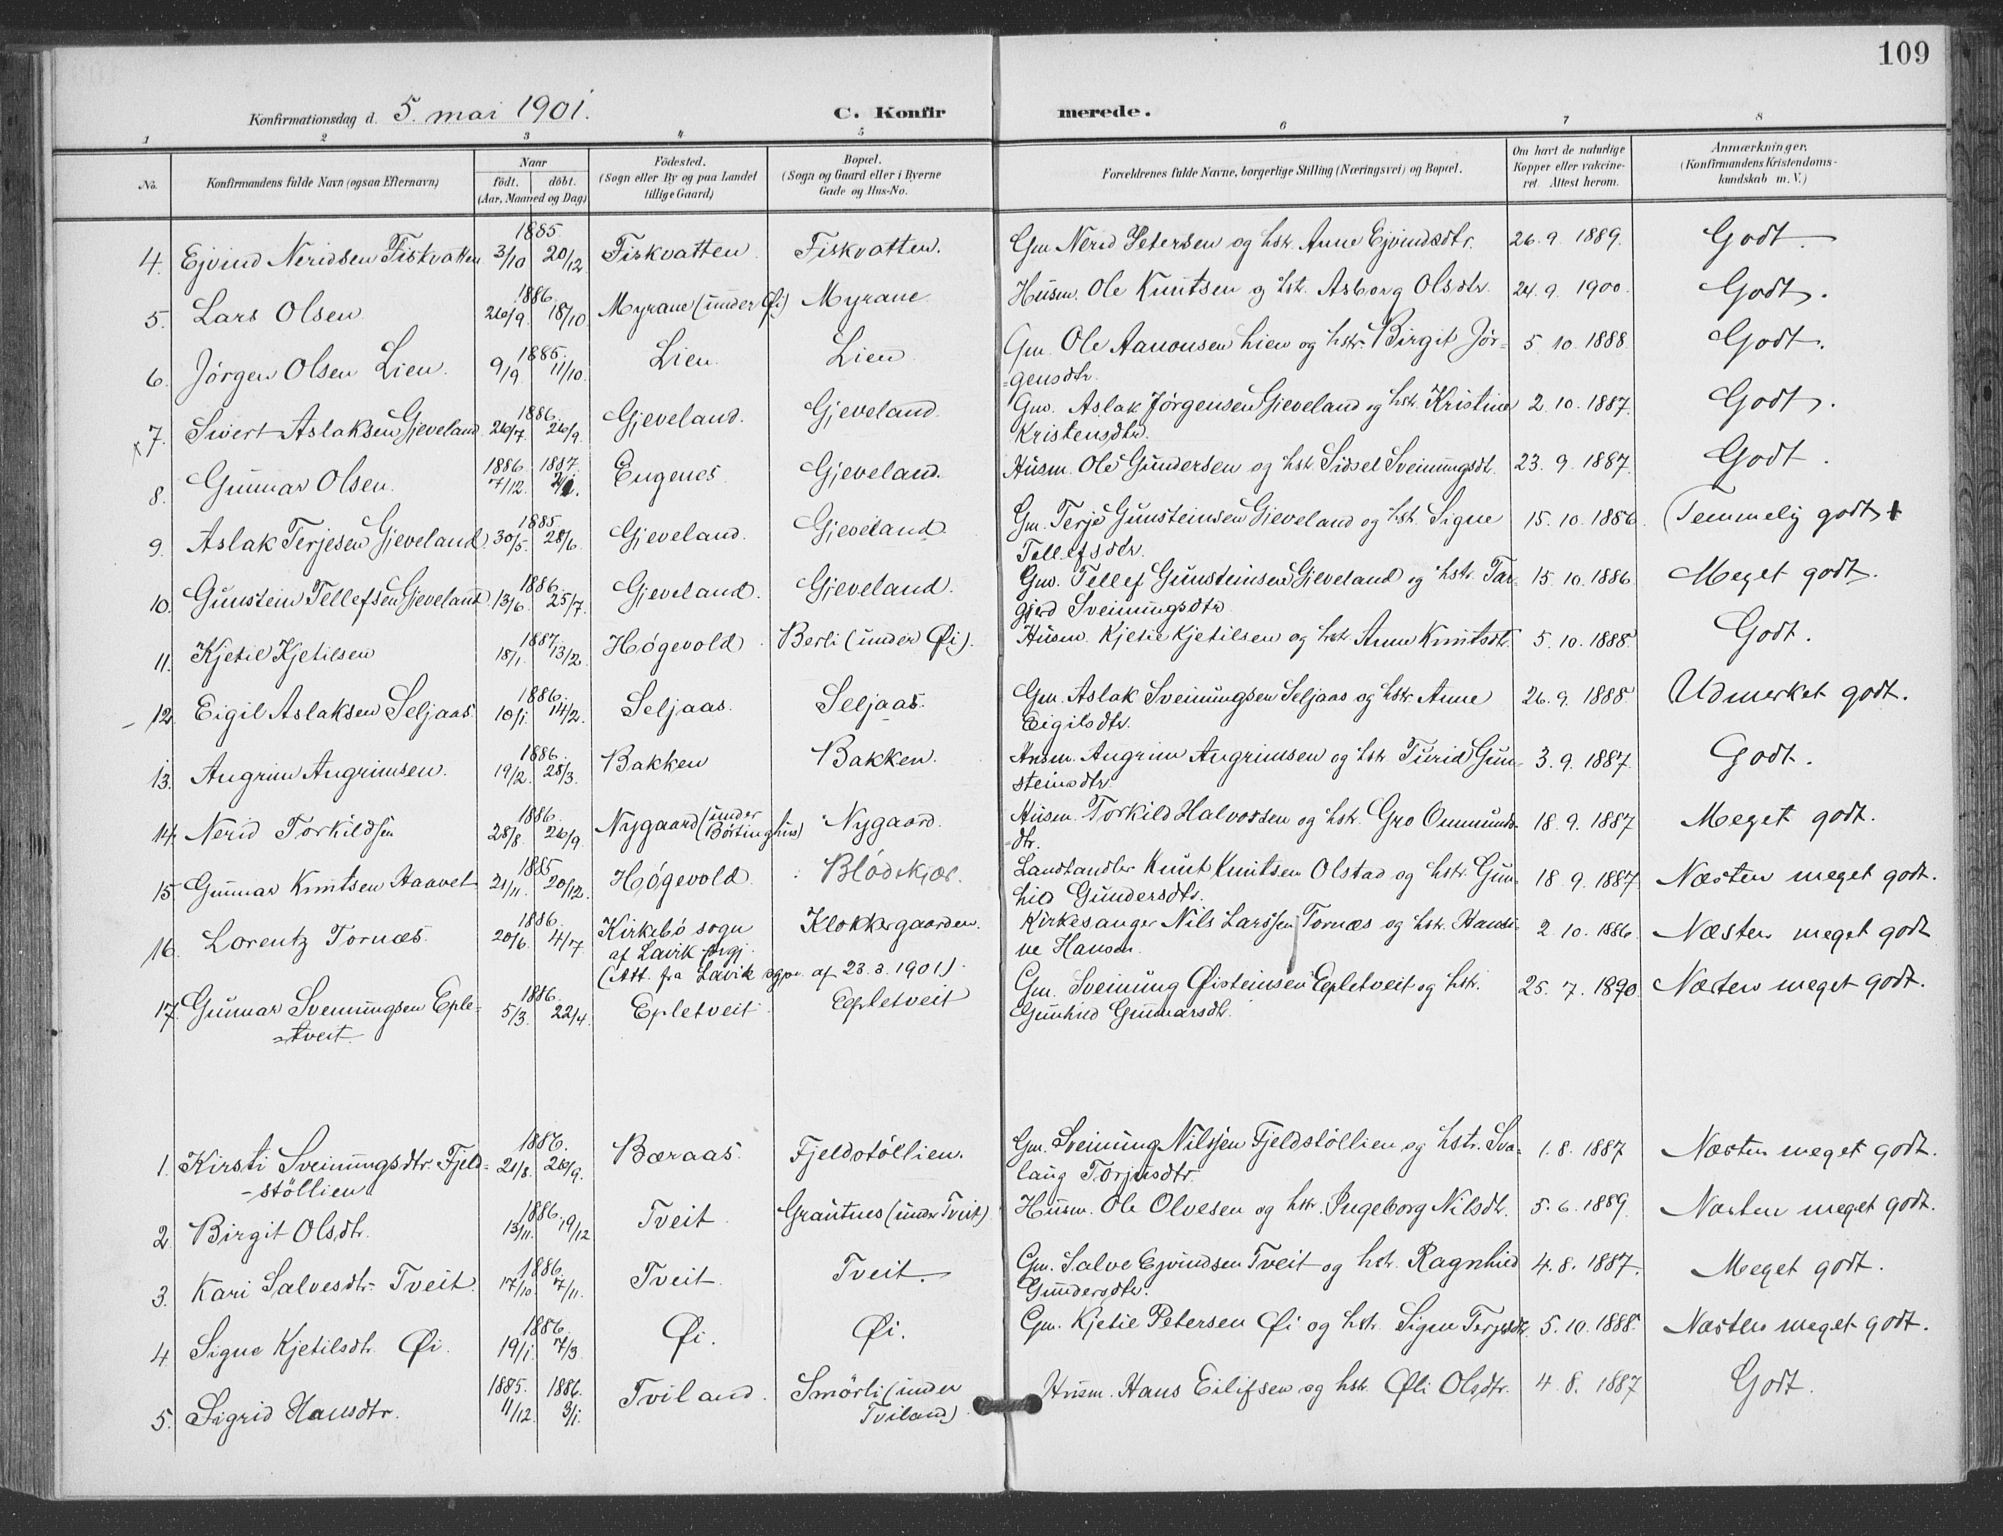 109
Konfirmationsdag d. 5. mai 1901. C. Konfirmerede.
1 2 3 4 5 6 7 8
No. Konfirmandens fulde Navn (ogsaa Efternavn) Naar født. døbt. (Aar, Maaned og Dag) Fødested. (Sogn eller By og paa Landet tillige Gaard) Bopæl. (Sogn og Gaard eller i Byerne Gade og Hus-No. Forældrenes fulde Navne, borgerlige Stilling (Næringsvei) og Bopæl. Om havt de naturlige Kopper eller vaccineret. Attest herom. Anmærkninger. (Konfirmandens Kristendomskundskab m. V.)
1885
4. Ejvind Neridsen Fiskvatten 3/10 20/12. Fiskvatten Fiskvatten. Gm. Nerid Petersen og hst. Anne Ejvindsdtr. 26. 9. 1889. Godt.
1886.
5. Lars Olsen 26/9. 18/10. Myrane (under Øi) Myrane Husm. Ole Knutsen og hst. Asborg Olsdtr. 24. 9. 1900. Godt.
1885.
6. Jørgen Olsen Lien. 9/9. 11/10. Lien. Lien Gm. Ole Aanonsen Lien og hstr. Birgit Jør- 5. 10. 1888. Godt.
=gensdtr.
1886.
7. Sivert Aslaksen Gjeveland. 26/7. 26/9. Gjeveland. Gjeveland. Gm. Aslak Jørgensen Gjeveland og hstr. Kristine 2. 10. 1887. Godt.
Kristensdtr.
1886. 1887.
8. Gunnar Olsen. 7/12. Eugenes Gjeveland. Husm. Ole Gundersen og hst. Sidsel Sveinungsdt. 23. 9. 1887. Godt.
1885.
9. Aslak Terjesen Gjeveland. 30/5. 28/6. Gjeveland. Gjeveland Gm. Terje Gunsteinsen Gjeveland og hst. Signe 15. 10. 1886. (Temmelig godt)
Tellefsdtr.
1886.
10. Gunstein Tellefsen Gjeveland 13/6. 25/7. Gjeveland. Gjeveland. Gm. Tellef Gunsteinsen Gjeveland og hstr. Tar- 15. 10. 1886. Meget godt.
gjerd Sveinungsdtr.
1887.
11. Kjetil Kjetilsen 18/1. 13/2. Høgevold Berli (under Øi). Husm. Kjetil Kjetilsen og hst. Anne Knutsdtr. 5. 10. 1888. Godt.
1886.
12. Eigil Aslaksen Seljaas 10/1. 14/2. Seljaas. Seljaas. Gm. Aslak Sveinungsen Seljaas og hstr. Anne 26. 9. 1888. Udmerket godt.
Eigilsdtr.
1886.
13. Angrim Angrimsen. 19/2. 28/3. Bakken Bakken. Husm. Angrim Angrimsen og hstr. Turid Gun- 3. 9. 1887. Godt.
steinsdtr.
1886.
14. Nerid Torkildsen 28/8. 26/9. Nygaard (under Børtinghus) Nygaard. Husm. Torkild Halvorsen og hstr. Gro Ommunds- 18. 9. 1887 Meget godt.
=dtr.
1885
15. Gunnar Knutsen Haavet 21/11. 20/12. Høgevold. Blødekjær. Landhandler Knut Knutsen Olstad og hstr. Gun- 18. 9. 1887. Næsten meget godt.
hild Gundersdtr.
1886.
16. Lorentz Tornæs. 20/6. 4/7. Kirkebø sogn Klokkergaarden. Kirkesanger Nils Larssen Tornæs og hstr. Hansi- 2. 10. 1886. Næsten meget godt
af Lavik prgj. ne Hansen.
(Att. fra Lavik sgpr. af 23. 3. 1901).
1886.
17. Gunnar Sveinungsen Eple- 5/3. 22/4. Epletveit Epletveit Gm. Sveinung Øisteinsen Epletveit og hst. 25. 7. 1890. Næsten meget godt.
=tveit. Gunhild Gunnarsdtr.
1886.
1. Kirsti Sveinungsdtr. Fjeld- 21/8. 26/9. Bæraas. Fjeldstøllien. Gm. Sveinung Nilssen Fjeldstøllien og hstr. Sva- 1. 8. 1887 Næsten meget godt.
-støllien laug Torjusdtr.
1886.
2. Birgit Olsdtr. 13/11. 19/12 Tveit Grautnes (under Tveit) Husm. Ole Olvesen og hstr. Ingeborg Nilsdtr. 5. 6. 1889. Næsten meget godt.
1886.
3. Kari Salvesdtr. Tveit. 17/10. 7/11. Tveit. Tveit. Gm. Salve Ejvindsen Tveit og hstr. Ragnhild 4. 8. 1887. Meget godt.
Gundersdtr.
1886.
4. Signe Kjetilsdtr. Øi. 19/1. 7/3. Øi. Øi. Gm. Kjetil Petersen Øi og hstr. Signe Terjesdtr. 5. 10. 1888. Næsten meget godt.
1885. 1886.
5. Sigrid Hansdtr. 11/12. 3/1. Tviland. Smörli (under Tviland) Husm. Hans Eilifsen og hstr. Øli Olsdtr. 4. 8. 1887 Godt.